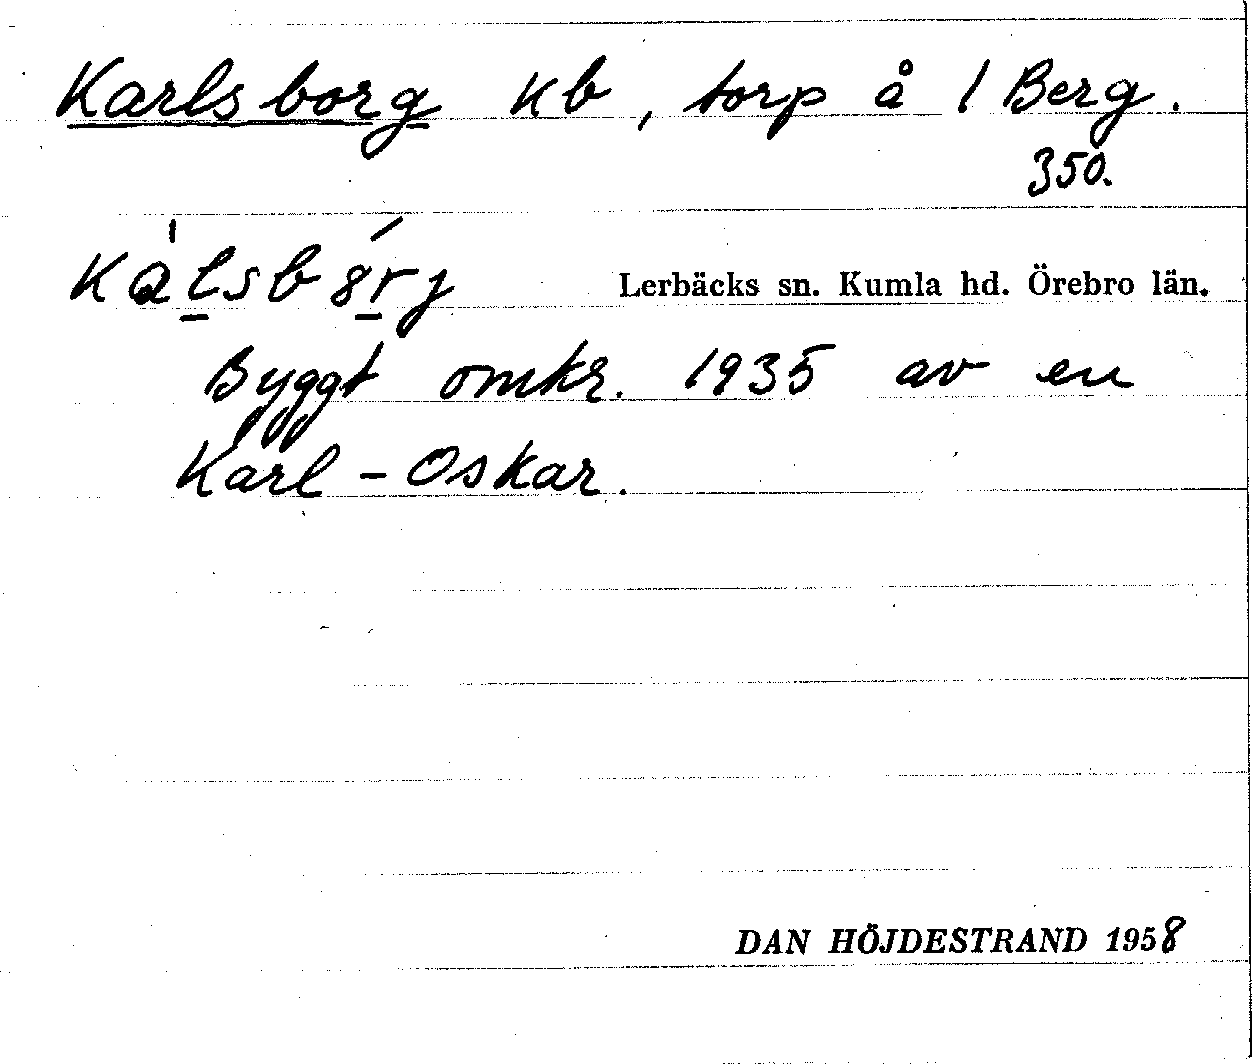 Karlsborg kb, torp å 1 Berg.
350.
Lerbäcks sn. Kumla hd. Örebro län.
Byggt omkr. 1935 av en
Karl-Oskar.
DAN HÖJDESTRAND 1958